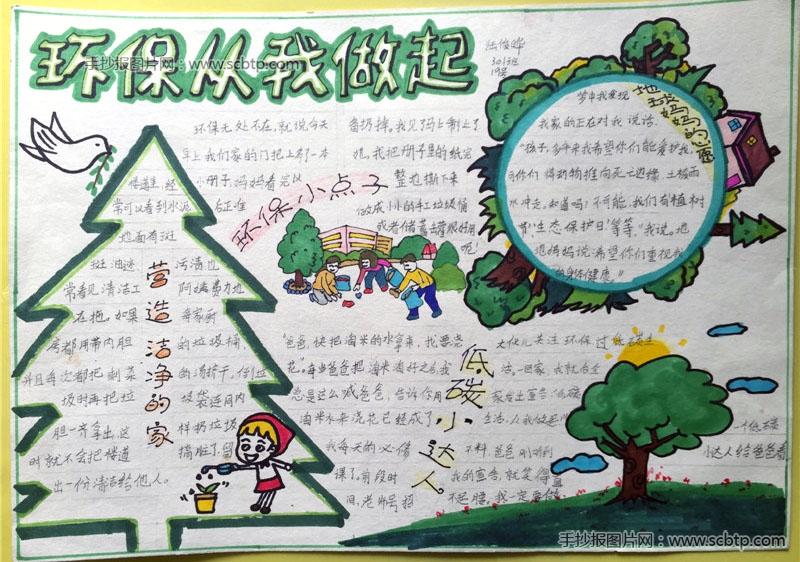 手抄报图片网：www.scbtp.com
环保从我做起
301班
19号
环保无处不在，就说今天
早上我们家的门把上有一本
小册子，妈妈看完以
后正准
备扔掉。我见了马上制止了
她，我把册子里的纸完
整地撕下来
做成小小的红垃圾桶
或者储蓄
吧！
环保小点子
梦中我发现
地球妈妈的心愿
我家的正在对我说话.
"孩子，多年来我希望你们能爱护我
水冲走。知道吗？不可能，我们有植树
节！生态保护日'等等."我说，地
球妈妈说：希望你们重视我
的身体健康。"
楼道里，经
常可以看到水泥
地面有斑
斑油迹
污渍也
常看见清洁工
阿姨费力地
在拖。如果
每家厨
房都用带内胆
的垃圾桶
并且每次都把剩菜
的汤挤干，倒垃
圾时再把垃
圾袋连同内
胆一齐拿出，这
样扔垃圾
时就不会把楼道
搞脏了，留
出一份清洁给他人。
营造洁净的家
"爸爸，快把淘米的水拿来，我要浇
花"。每当爸爸把淘米淘好之后，我
总是这么喊爸爸，告诉你用
淘米水来浇花已经成了
我每天的必修
课了。前段时
间，老师号召
低碳小达人
大伙儿关注环保过低碳生
活。一回家，我就给全
家发出宣告："低碳
生活，从我做起"
不料，爸爸刚听到
我的宣告，就笑得直
不起腰，我一定要做
一个低碳
小达人给爸爸看。
手抄报图片网：www.scbtp.com